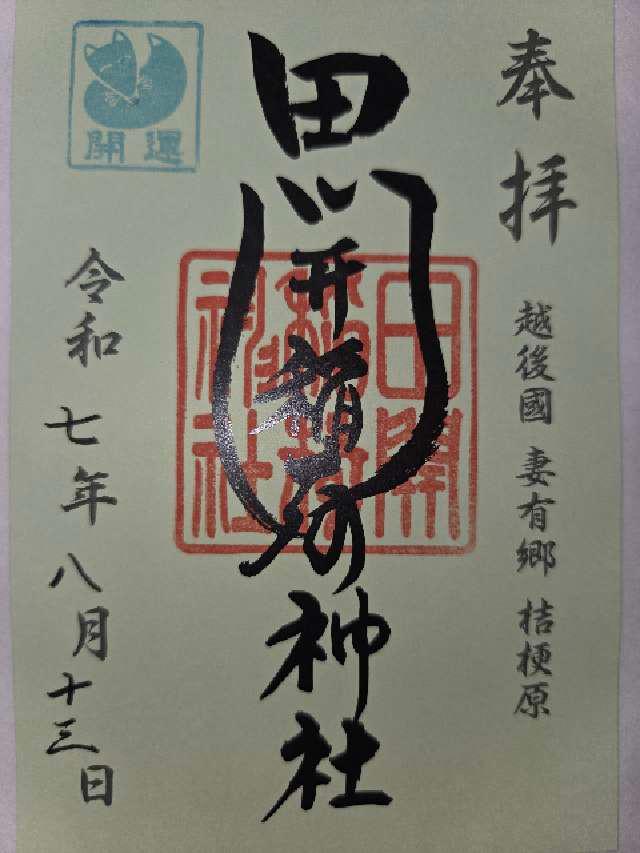 奉拝
越後國 妻有郷 桔梗原
田開稲荷神社
田開稲荷神社
開運
令和七年八月十三日